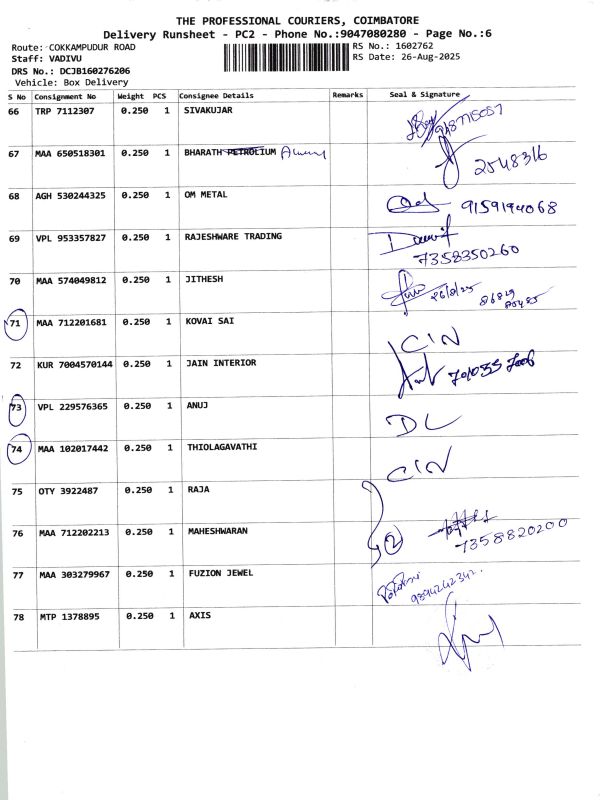 THE PROFESSIONAL COURIERS, COIMBATORE
Delivery Runsheet - PC2 - Phone No.:9047080280 - Page No.:6
Route: COKKAMPUDUR ROAD RS No.: 1602762
Staff: VADIVU RS Date: 26-Aug-2025
DRS No.: DCJB160276206
Vehicle: Box Delivery
S No Consignment No Weight PCS Consignee Details Remarks Seal & Signature
66 TRP 7112307 0.250 1 SIVAKUJAR
67 MAA 650518301 0.250 1 BHARATH PETROLIUM 2548316
68 AGH 530244325 0.250 1 OM METAL 9159194068
69 VPL 953357827 0.250 1 RAJESHWARE TRADING 7358350260
70 MAA 574049812 0.250 1 JITHESH 26/8/25
71 MAA 712201681 0.250 1 KOVAI SAI CIN
72 KUR 7004570144 0.250 1 JAIN INTERIOR
73 VPL 229576365 0.250 1 ANUJ DL
74 MAA 102017442 0.250 1 THIOLAGAVATHI CIN
75 OTY 3922487 0.250 1 RAJA
76 MAA 712202213 0.250 1 MAHESHWARAN 2 7358820200
77 MAA 303279967 0.250 1 FUZION JEWEL 9894242342.
78 MTP 1378895 0.250 1 AXIS